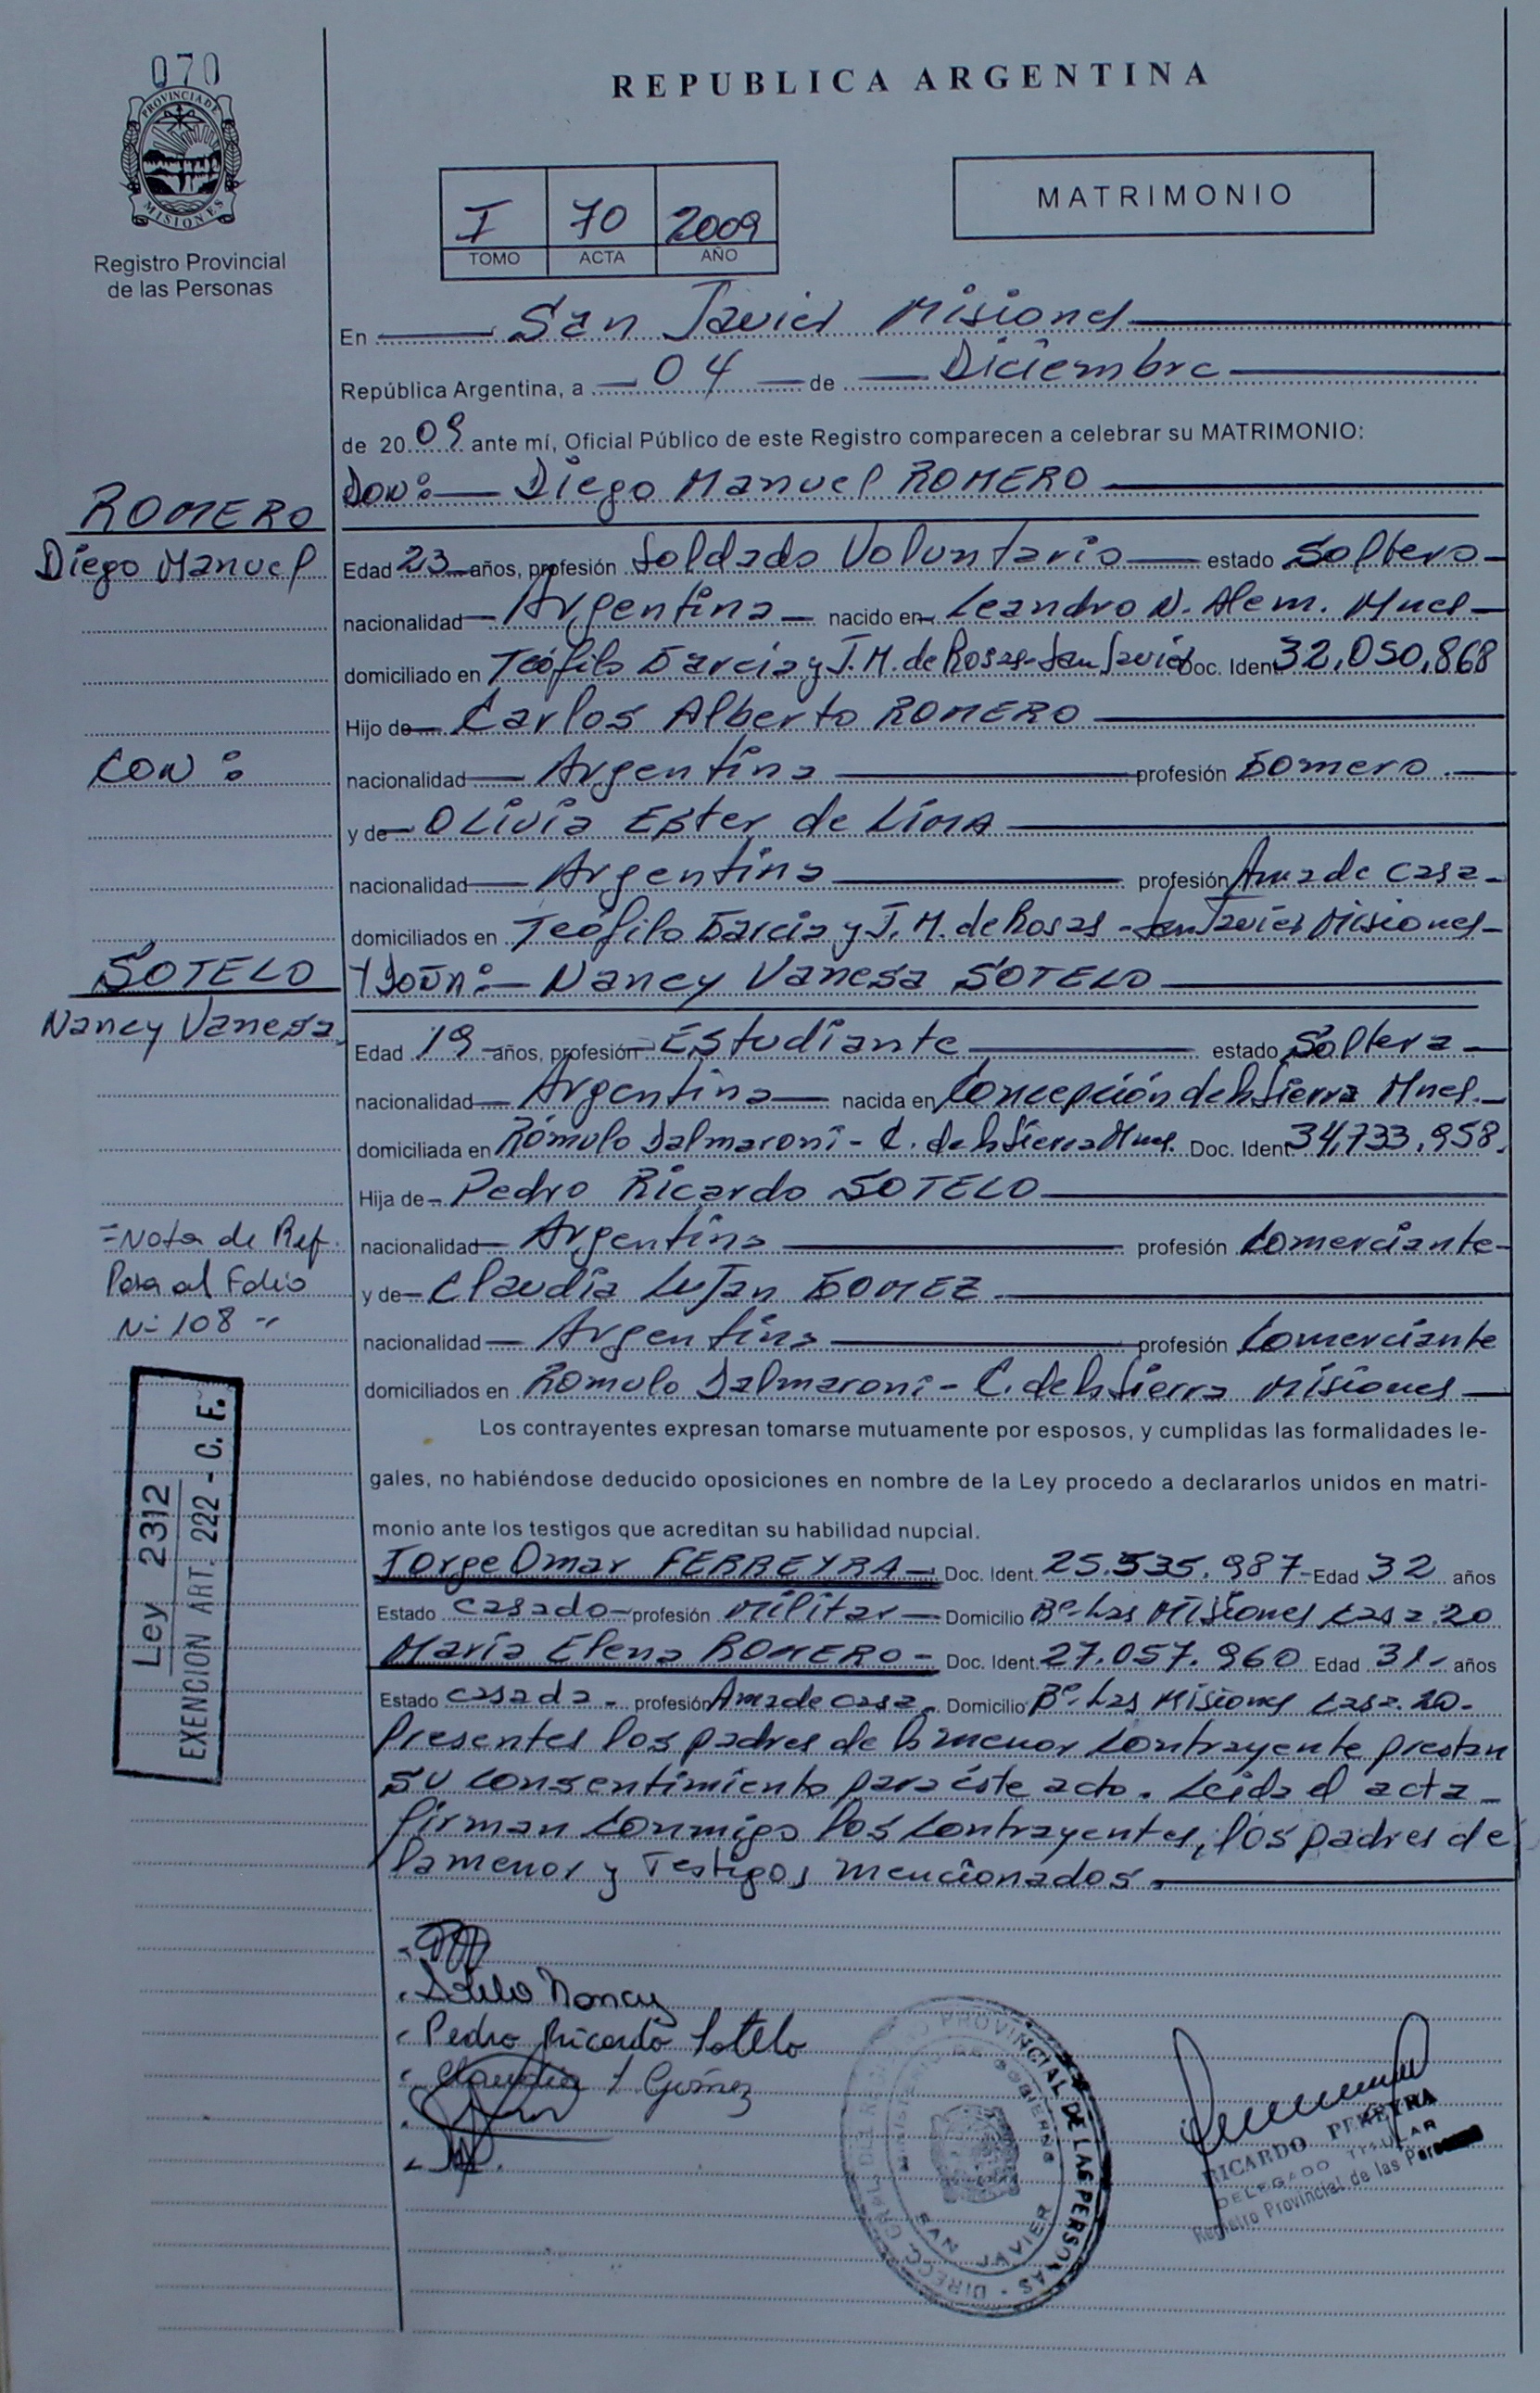 070
PROVINCIA DE
MISIONES
Registro Provincial
de las Personas
REPUBLICA ARGENTINA
I 70 2009
TOMO ACTA AÑO
MATRIMONIO
En San Javier Misiones
República Argentina, a 04 de Diciembre
de 2009 ante mí, Oficial Público de este Registro comparecen a celebrar su MATRIMONIO:
DON: Diego Manuel ROMERO
ROMERO
Diego Manuel
Edad 23 años, profesión Soldado Voluntario estado Soltero
nacionalidad Argentina nacido en Leandro N. Alem. Mnes
domiciliado en Teófilo García y J.M. de Rosas - San Javier Doc. Ident 32,050,868
Hijo de Carlos Alberto ROMERO
CON:
nacionalidad Argentina profesión Gomero
y de Olivia Ester de LIMA
nacionalidad Argentina profesión Ama de casa
domiciliados en Teófilo García y J.M. de Rosas - San Javier Misiones
SOTELO
Nancy Vanesa
Y DOÑA: Nancy Vanesa SOTELO
Edad 19 años, profesión Estudiante estado Soltera
nacionalidad Argentina nacida en Concepción de la Sierra Mnes.
domiciliada en Rómulo Salmaroni - C. de la Sierra Mnes. Doc. Ident 34,733,958.
Hija de Pedro Ricardo SOTELO
=Nota de Ref.
Pasa al Folio
Nº 108 "
nacionalidad Argentina profesión Comerciante
y de Claudia Lujan GOMEZ
nacionalidad Argentina profesión Comerciante
domiciliados en Romulo Salmaroni - C. de la Sierra Misiones
Ley 2312
EXENCION ART. 222 - C. F.
Los contrayentes expresan tomarse mutuamente por esposos, y cumplidas las formalidades le-
gales, no habiéndose deducido oposiciones en nombre de la Ley procedo a declararlos unidos en matri-
monio ante los testigos que acreditan su habilidad nupcial.
Jorge Omar FERREYRA Doc. Ident. 25.535.987 Edad 32 años
Estado casado profesión Militar Domicilio Bº Las Misiones Casa.20
María Elena ROMERO Doc. Ident. 27.057.960 Edad 31 años
Estado casada profesión Ama de casa Domicilio Bº. Las Misiones Casa.20
Presentes los padres de la menor contrayente prestan
su consentimiento para éste acto. Leida el acta
firman conmigo los contrayentes, los padres de
la menor y Testigos mencionados.
Sotelo Nancy
Pedro Ricardo Sotelo
Claudia L Gómez
DIRECC. GRAL. DEL REGISTRO PROVINCIAL DE LAS PERSONAS
MINISTERIO DE GOBIERNO
SAN JAVIER
RICARDO PEREYRA
DELEGADO TITULAR
Registro Provincial de las Personas